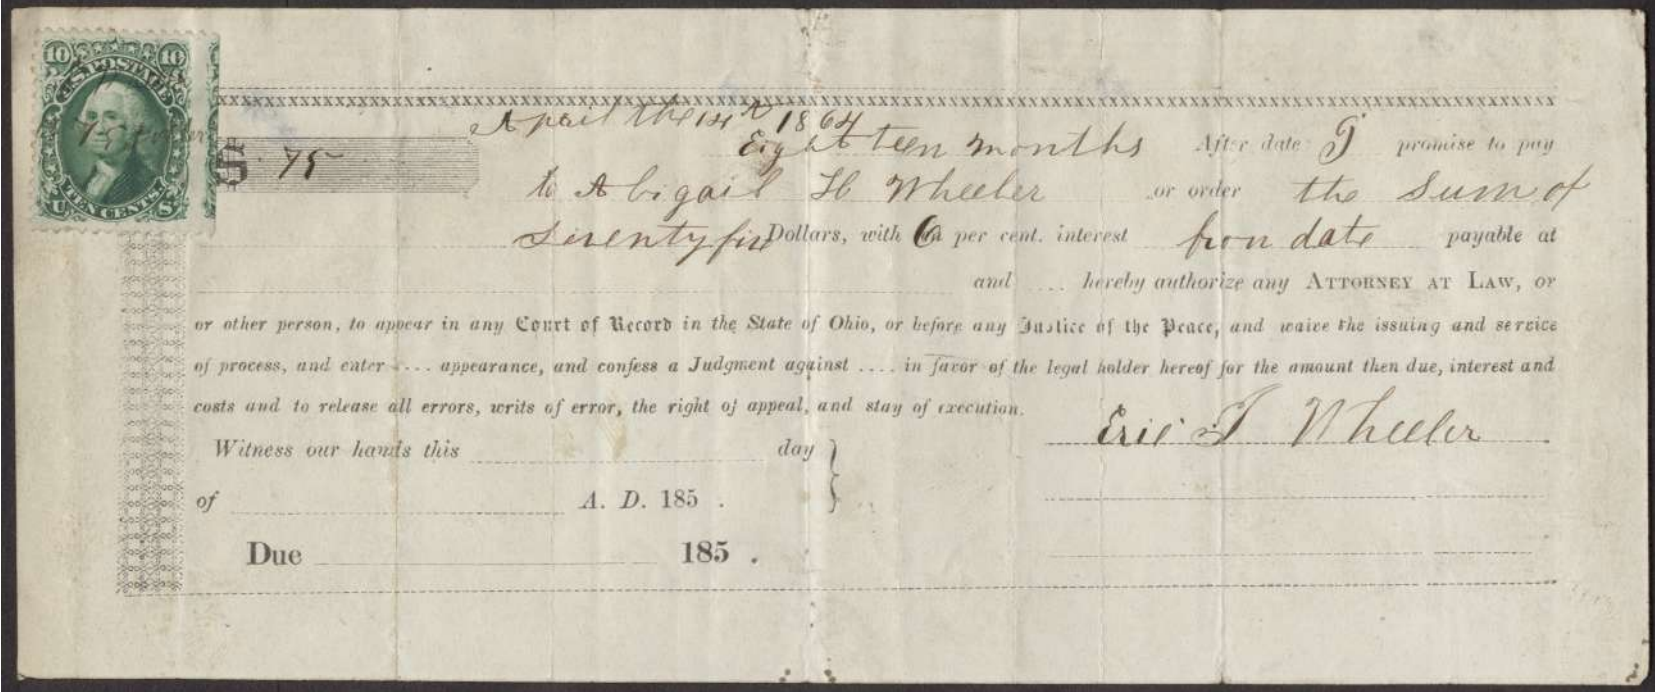 10 10
U.S. POSTAGE
TEN CENTS.
U S
April the 14th 1864
$ 75
Eighteen months After date I promise to pay
to Abigail H Wheeler or order the sum of
Seventy five Dollars, with 6 per cent. interest from date payable at
and .... hereby authorize any ATTORNEY AT LAW, or
or other person, to appear in any Court of Record in the State of Ohio, or before any Justice of the Peace, and waive the issuing and service
of process, and enter .... appearance, and confess a Judgment against .... in favor of the legal holder hereof for the amount then due, interest and
costs and to release all errors, writs of error, the right of appeal, and stay of execution.
Eric T Wheeler
Witness our hands this day
of A. D. 185 .
Due 185 .